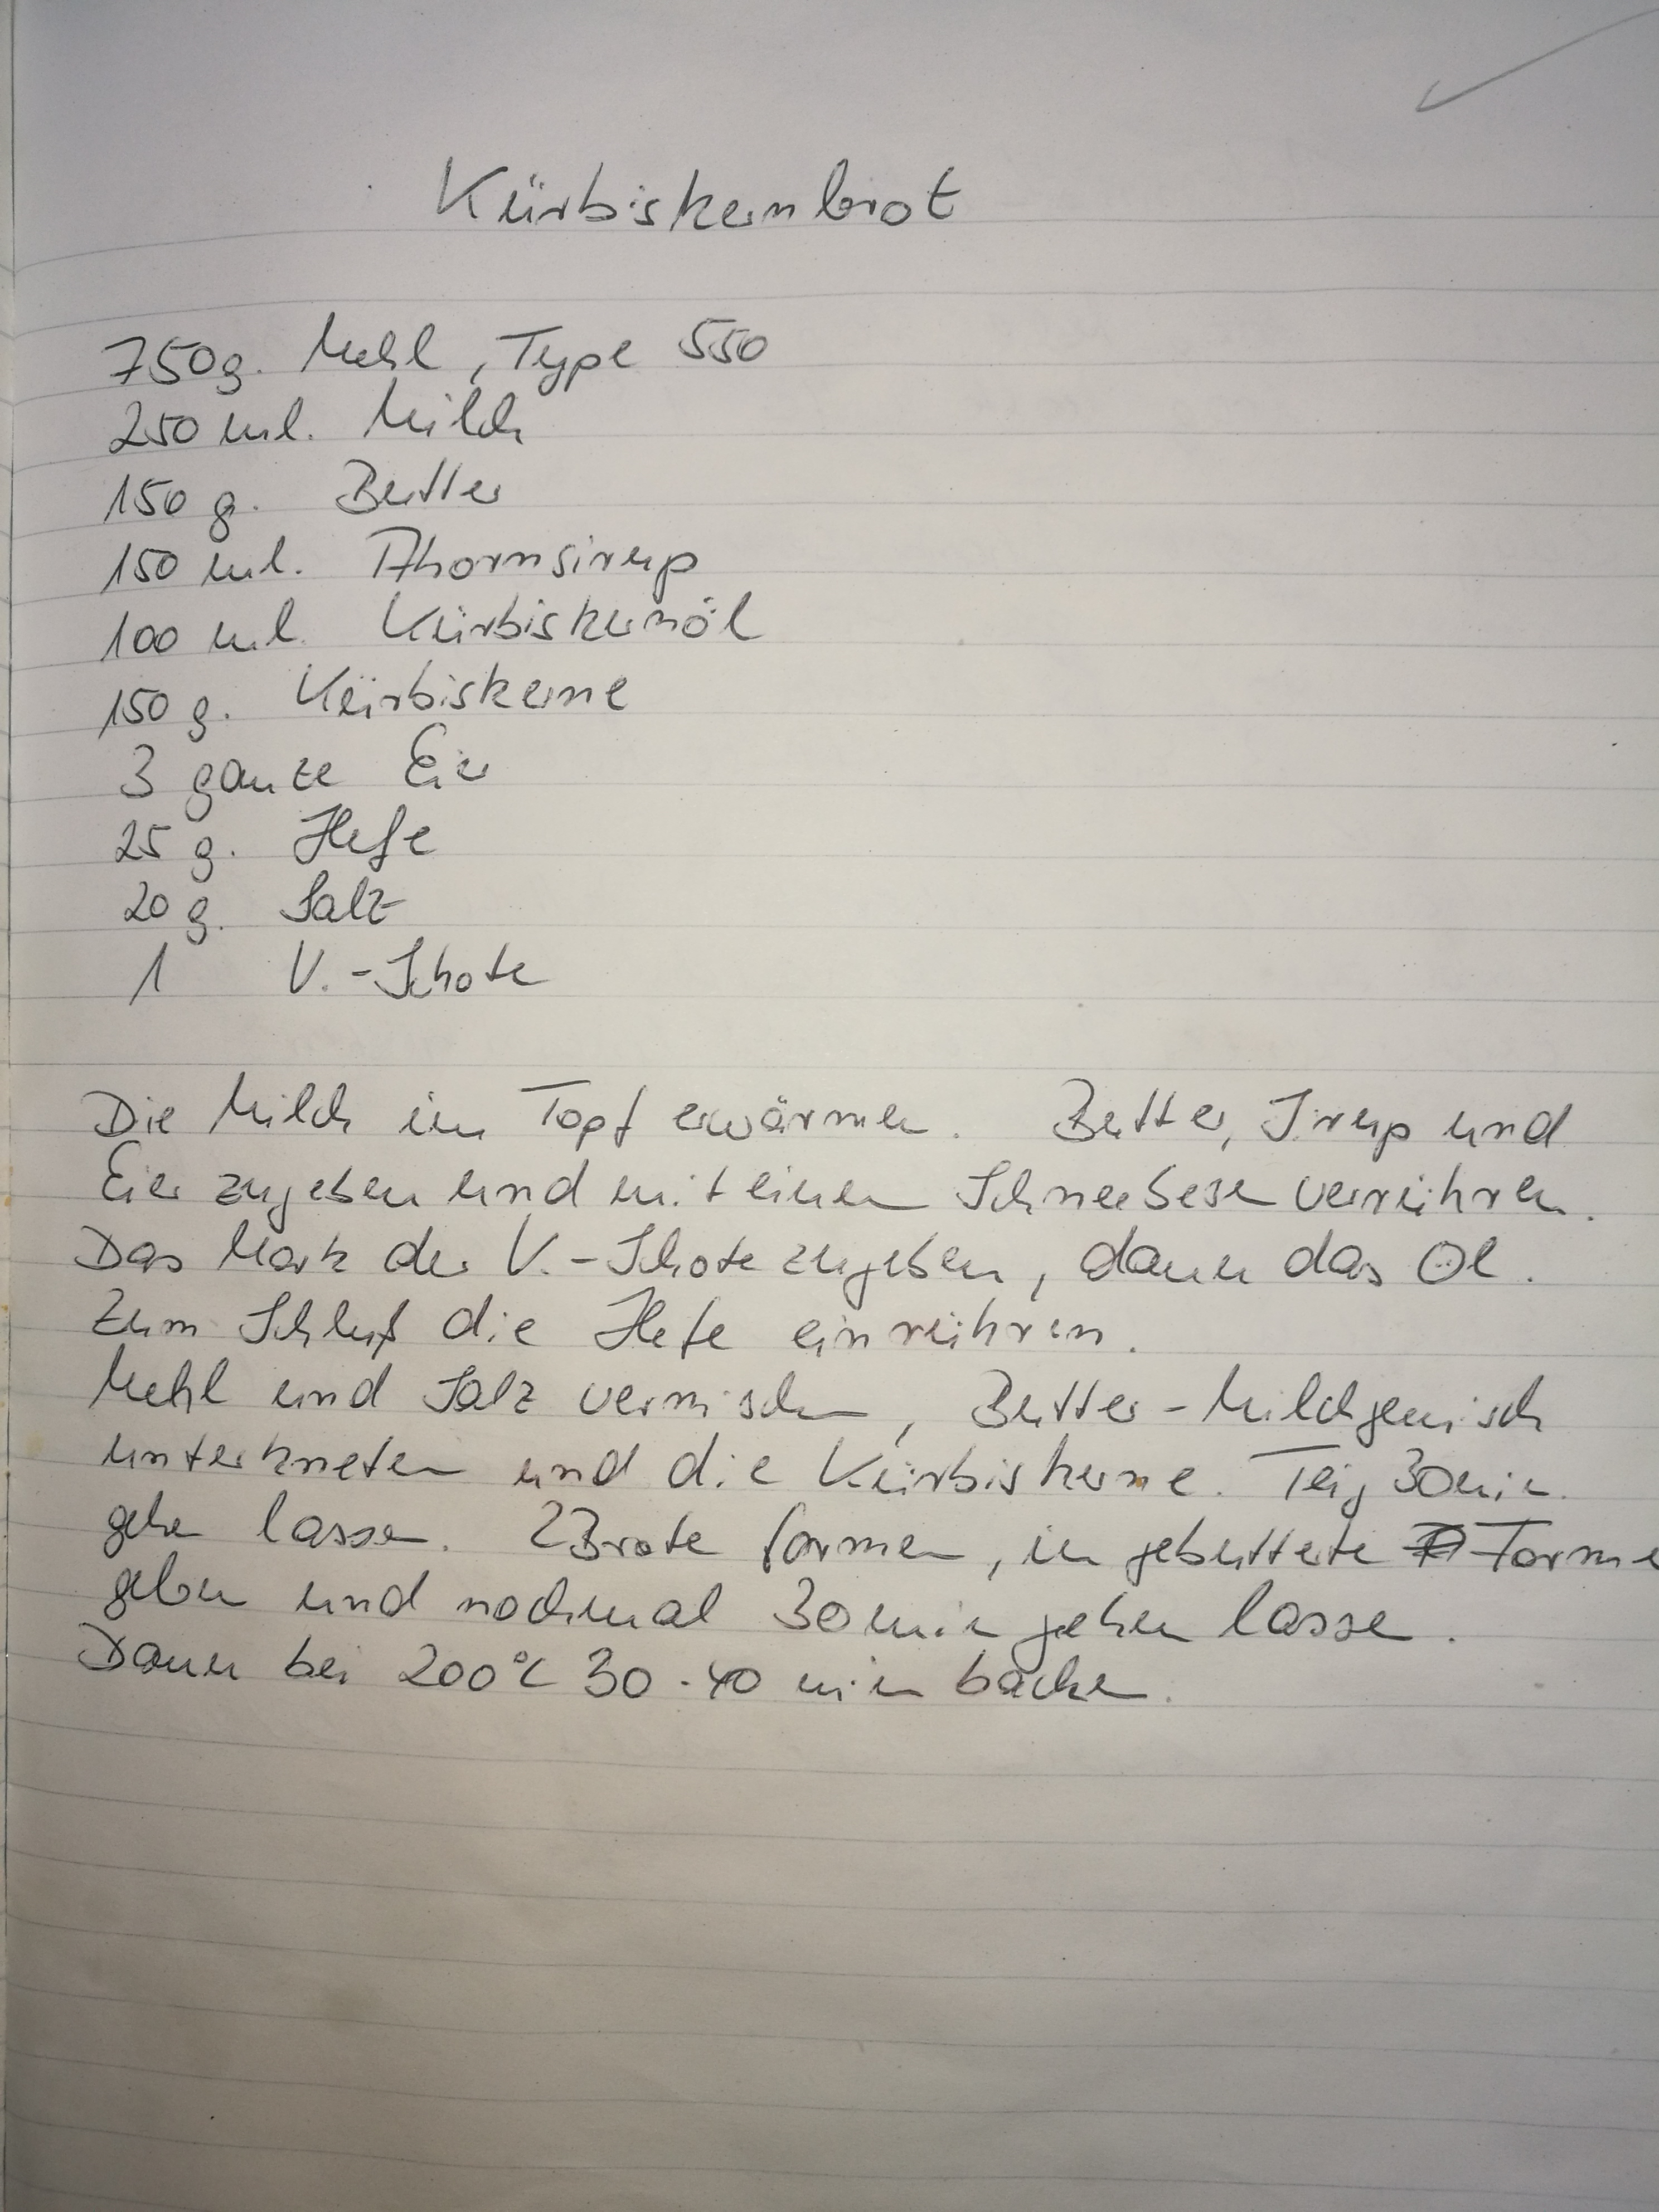 Kürbiskernbrot
750g. Mehl, Type 550
250 ml. Milch
150 g. Butter
150 ml. Ahornsirup
100 ml. Kürbiskernöl
150 g. Kürbiskerne
3 ganze Eier
25 g. Hefe
20 g. Salz
1 V.-Schote
Die Milch im Topf erwärmen. Butter, Sirup und
Eier zugeben und mit einen Schneebesen verrühren.
Das Mark der V.-Schote zugeben, dann das Öl.
Zum Schluß die Hefe einrühren.
Mehl und Salz vermischen, Butter-Milchgemisch
unterkneten und die Kürbiskerne. Teig 30 min.
gehen lassen. 2 Brote formen, in gebutterte Forme
geben und nochmal 30 min gehen lassen.
Dann bei 200°C 30-40 min backen.